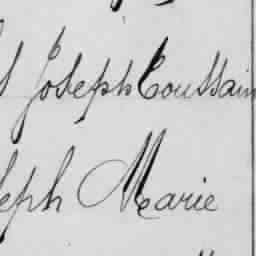 Joseph Toussain
seph Marie